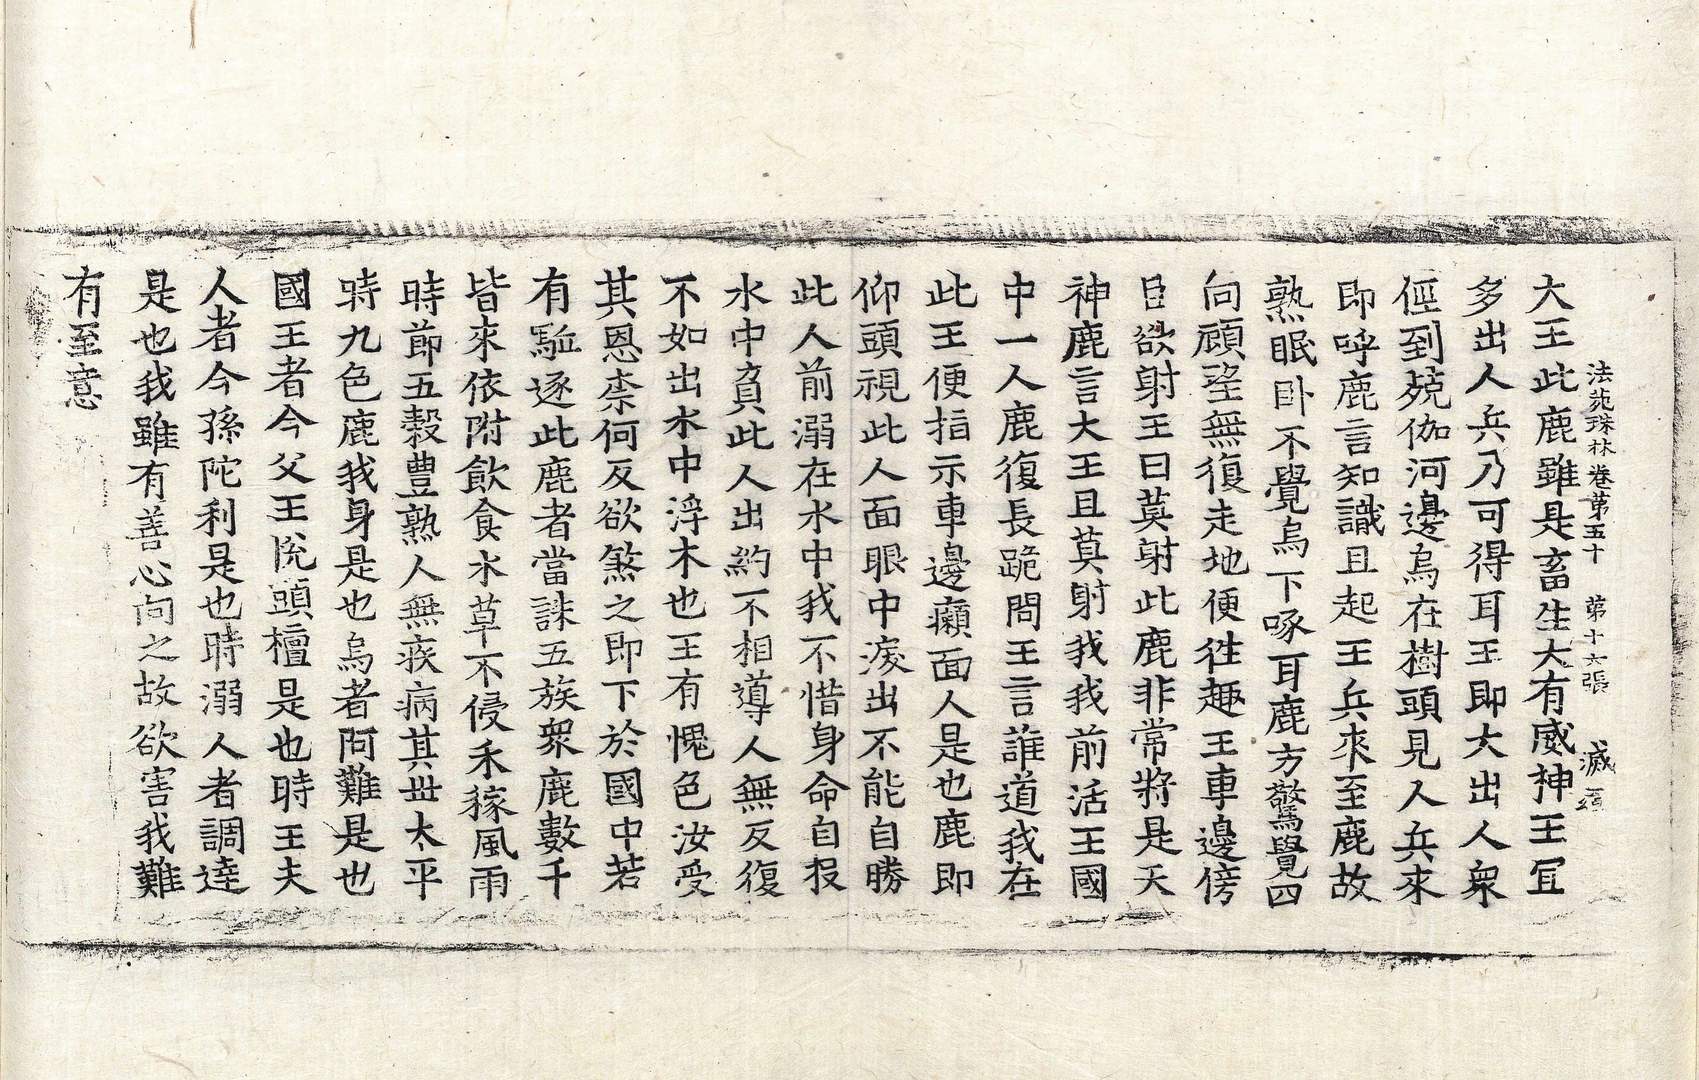 法苑珠林卷第五十 第十六張 㓕
大王此鹿雖是畜生大有威神王冝
多出人兵乃可得耳王即大出人衆
俓到兢伽河邊烏在樹頭見人兵來
即呼鹿言知識且起王兵來至鹿故
熟眠卧不覺烏下啄耳鹿方驚覺四
向顧望無復走地便往趣王車邊傍
臣欲射王曰莫射此鹿非常將是天
神鹿言大王且莫射我我前活王國
中一人鹿復長跪問王言誰道我在
此王便指示車邊癩面人是也鹿即
仰頭視此人面眼中淚出不能自勝
此人前溺在水中我不惜身命自投
水中負此人出約不相導人無反復
不如出水中浮木也王有愧色汝受
其恩柰何反欲煞之即下於國中若
有駈逐此鹿者當誅五族衆鹿數千
皆來依附飲食水草不侵禾稼風雨
時節五穀豊熟人無疾病其丗太平
時九色鹿我身是也烏者阿難是也
國王者今父王恱頭檀是也時王夫
人者今孫陀利是也時溺人者調達
是也我雖有善心向之故欲害我難
有至意